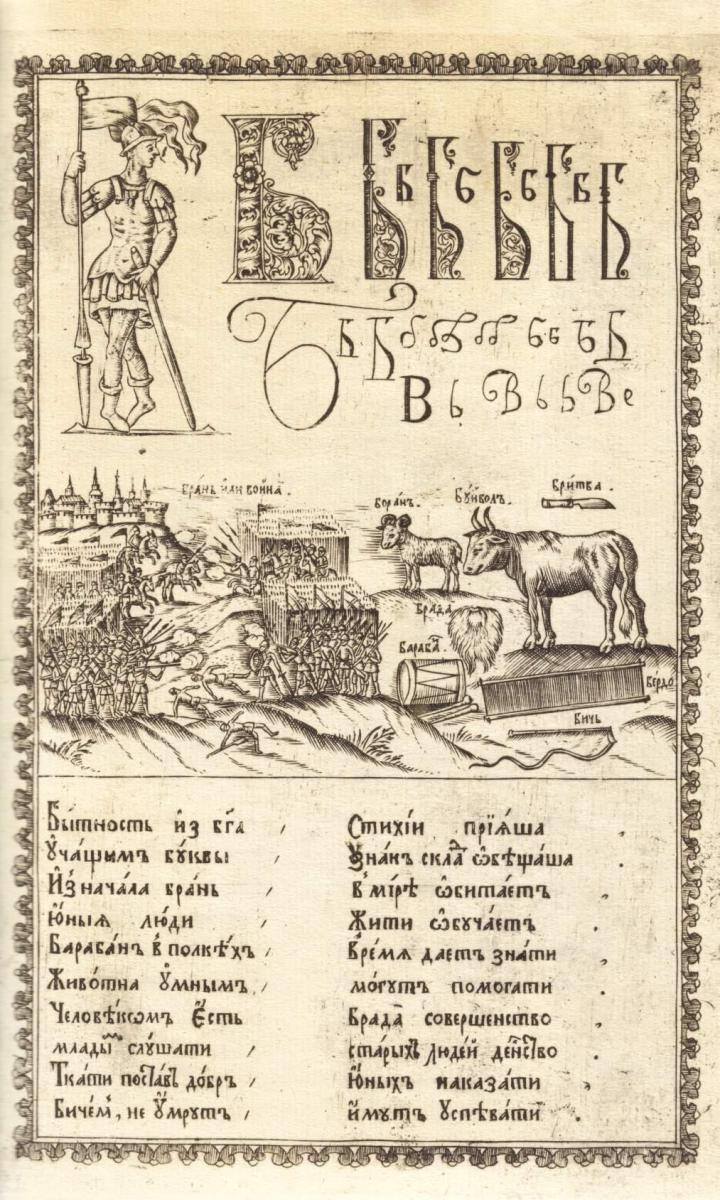 Б Б Б Б Б Б Б Б Б Б
Б Б Б
В В В е
Бра́нь и҆лѝ война̀ .
Бора́нъ .
Бꙋ́йволъ .
Бри́тва .
Брада
Бараба́ .
Бердо
Бичь
Бы́тность и҆з бг҃а , Стихі́и прїѧ́ша ,
Оу҆ча́щымъ бꙋ́квы ѡ҆бѣща́ша .
И҆з нача́ла бра́нь , в мі́рѣ ѡ҆бита́етъ ,
Ю҆́ныѧ лю́ди , Жи́ти ѡ҆бꙋча́етъ .
Бараба́нъ в полкѣ́хъ , вре́мѧ дае́тъ зна́ти ,
Живо́тна оу҆́мнымъ , мо́гꙋтъ помога́ти .
Человѣ́комъ є҆́сть Брада̀ соверше́нство ,
млады̑м слꙋ́шати , ста́рыхъ люде́й де́йство .
Тка́ти поста́въ до́бръ , Ю҆́ныхъ наказа́ти ,
Биче́м , не оу҆́мрꙋтъ , и҆́мꙋтъ оу҆спѣва́ти .